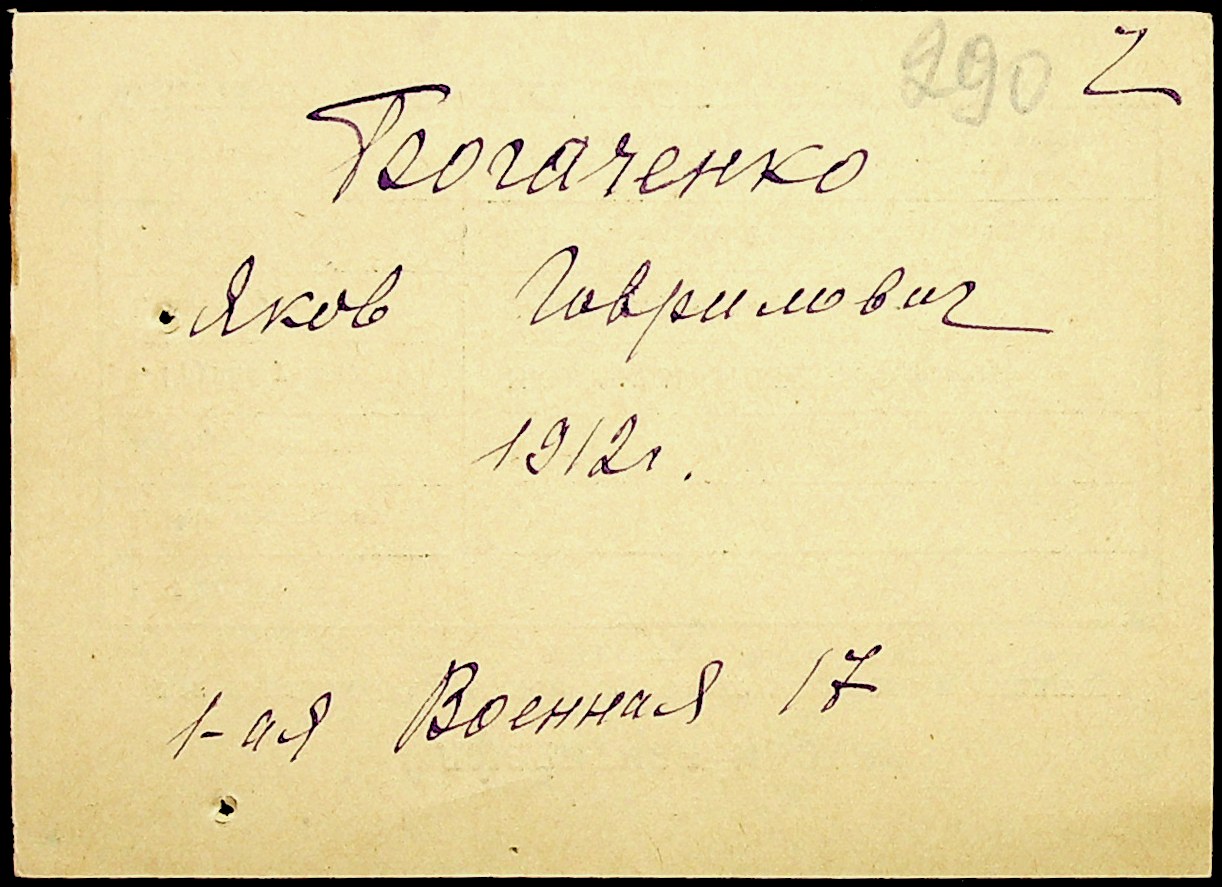 290 2
Богаченко
Яков Гаврилович
1912 г.
1-ая Военная 17